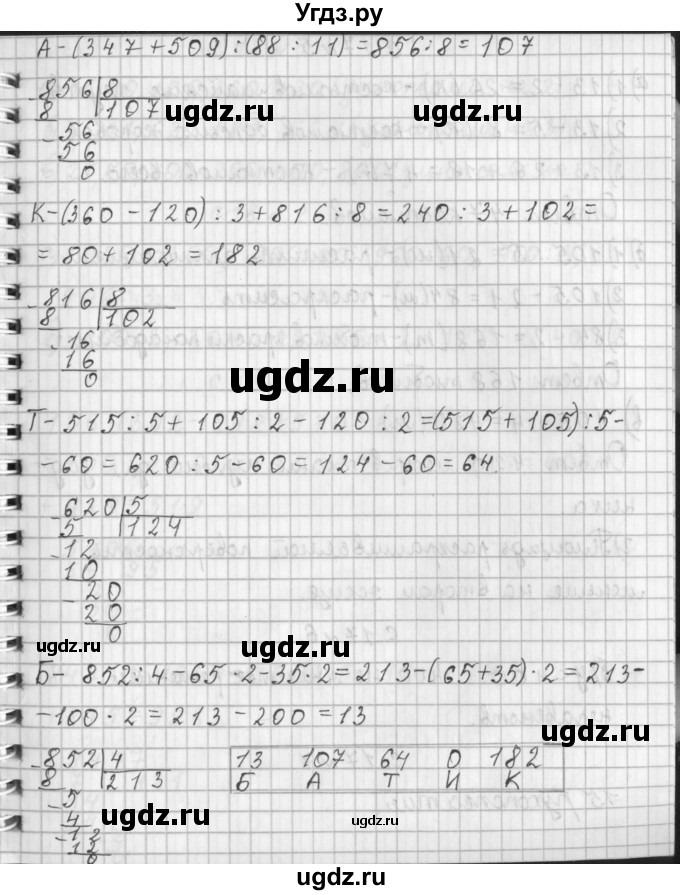 Угдз.ру
А-(347+509):(88:11)=856:8=107
-856|8
8 |107
-56
56
0
ugdz.ru
ugdz.ru
К-(360-120):3+816:8=240:3+102=
=80+102=182
-816|8
8 |102
-16
16
0
ugdz.ru
ugdz.ru
Т-515:5+105:2-120:2=(515+105):5-
-60=620:5-60=124-60=64
-620|5
5 |124
-12
10
-20
20
0
ugdz.ru
ugdz.ru
Б- 852:4-65·2-35·2=213-(65+35)·2=213-
-100·2=213-200=13
ugdz.ru
-852|4
8 |213
-5
4
-12
12
0
13 107 64 0 182
Б А Т И К
ugdz.ru